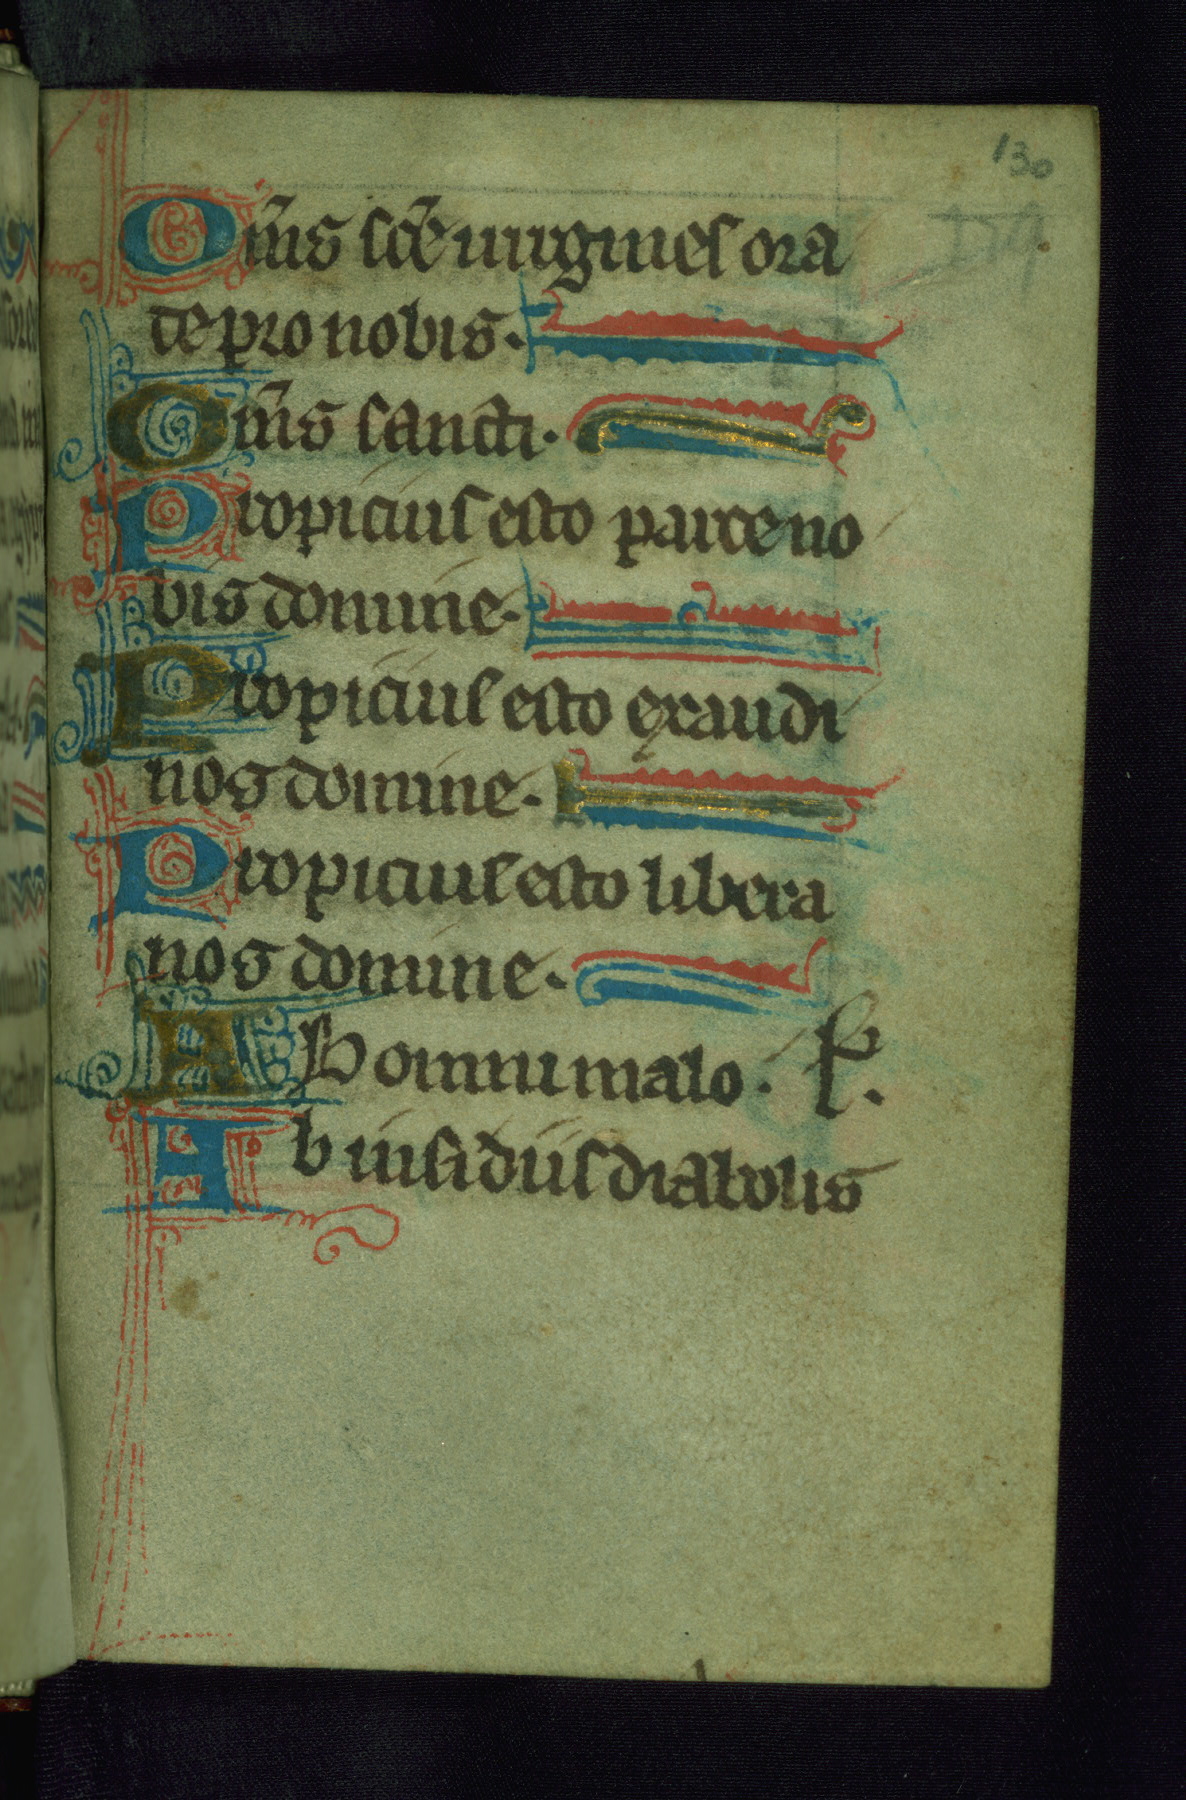 130
Om̅s sc̅e uirgines ora
te pro nobis.
Om̅s sancti.
Propicius esto parce no
bis domine.
Propicius esto exaudi
nos domine.
Propicius esto libera
nos domine.
AB omni malo. l̶.
Ab insidiis diaboli